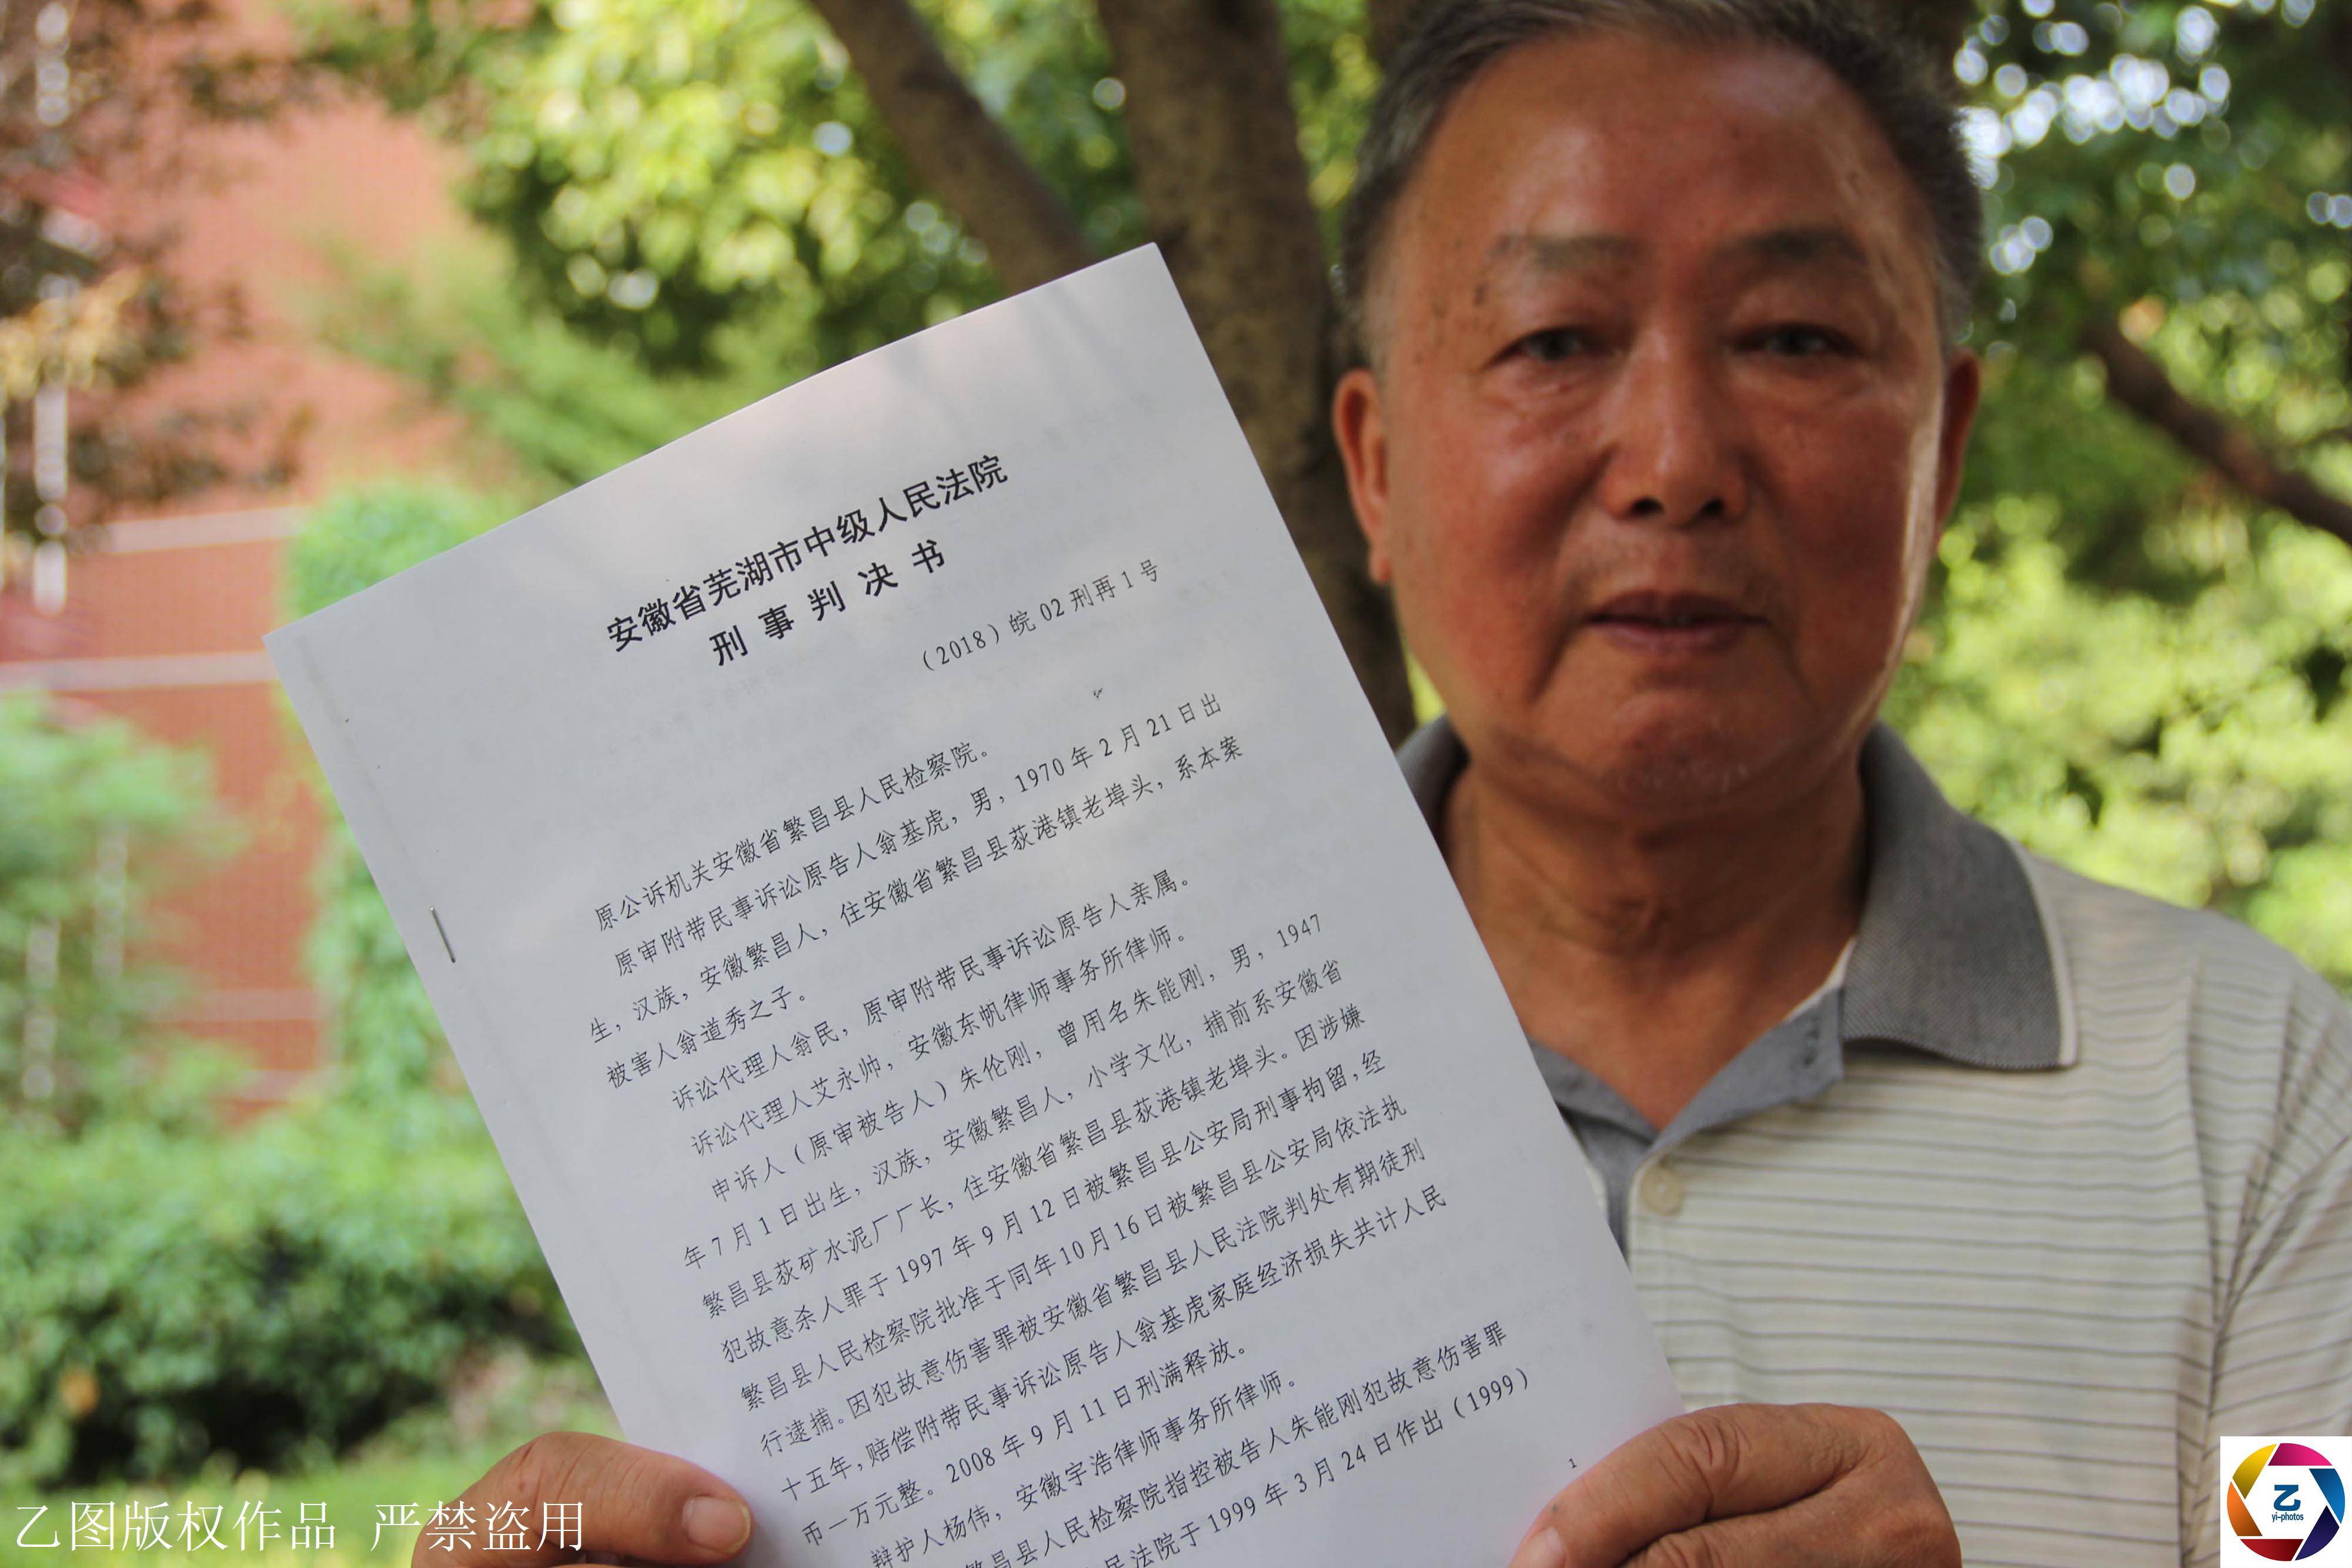 安徽省芜湖市中级人民法院
刑事判决书
（2018）皖02刑再1号
原公诉机关安徽省繁昌县人民检察院。
原审附带民事诉讼原告人翁基虎，男，1970年2月21日出
生，汉族，安徽繁昌人，住安徽省繁昌县荻港镇老埠头，系本案
被害人翁道秀之子。
诉讼代理人翁民，原审附带民事诉讼原告人亲属。
诉讼代理人艾永帅，安徽东帆律师事务所律师。
申诉人（原审被告人）朱伦刚，曾用名朱能刚，男，1947
年7月1日出生，汉族，安徽繁昌人，小学文化，捕前系安徽省
繁昌县荻矿水泥厂厂长，住安徽省繁昌县荻港镇老埠头。因涉嫌
犯故意杀人罪于1997年9月12日被繁昌县公安局刑事拘留，经
繁昌县人民检察院批准于同年10月16日被繁昌县公安局依法执
行逮捕。因犯故意伤害罪被安徽省繁昌县人民法院判处有期徒刑
十五年，赔偿附带民事诉讼原告人翁基虎家庭经济损失共计人民
币一万元整。2008年9月11日刑满释放。
辩护人杨伟，安徽宇浩律师事务所律师。
繁昌县人民检察院指控被告人朱能刚犯故意伤害罪
民法院于1999年3月24日作出（1999）
1
乙图版权作品 严禁盗用
乙
yi-photos